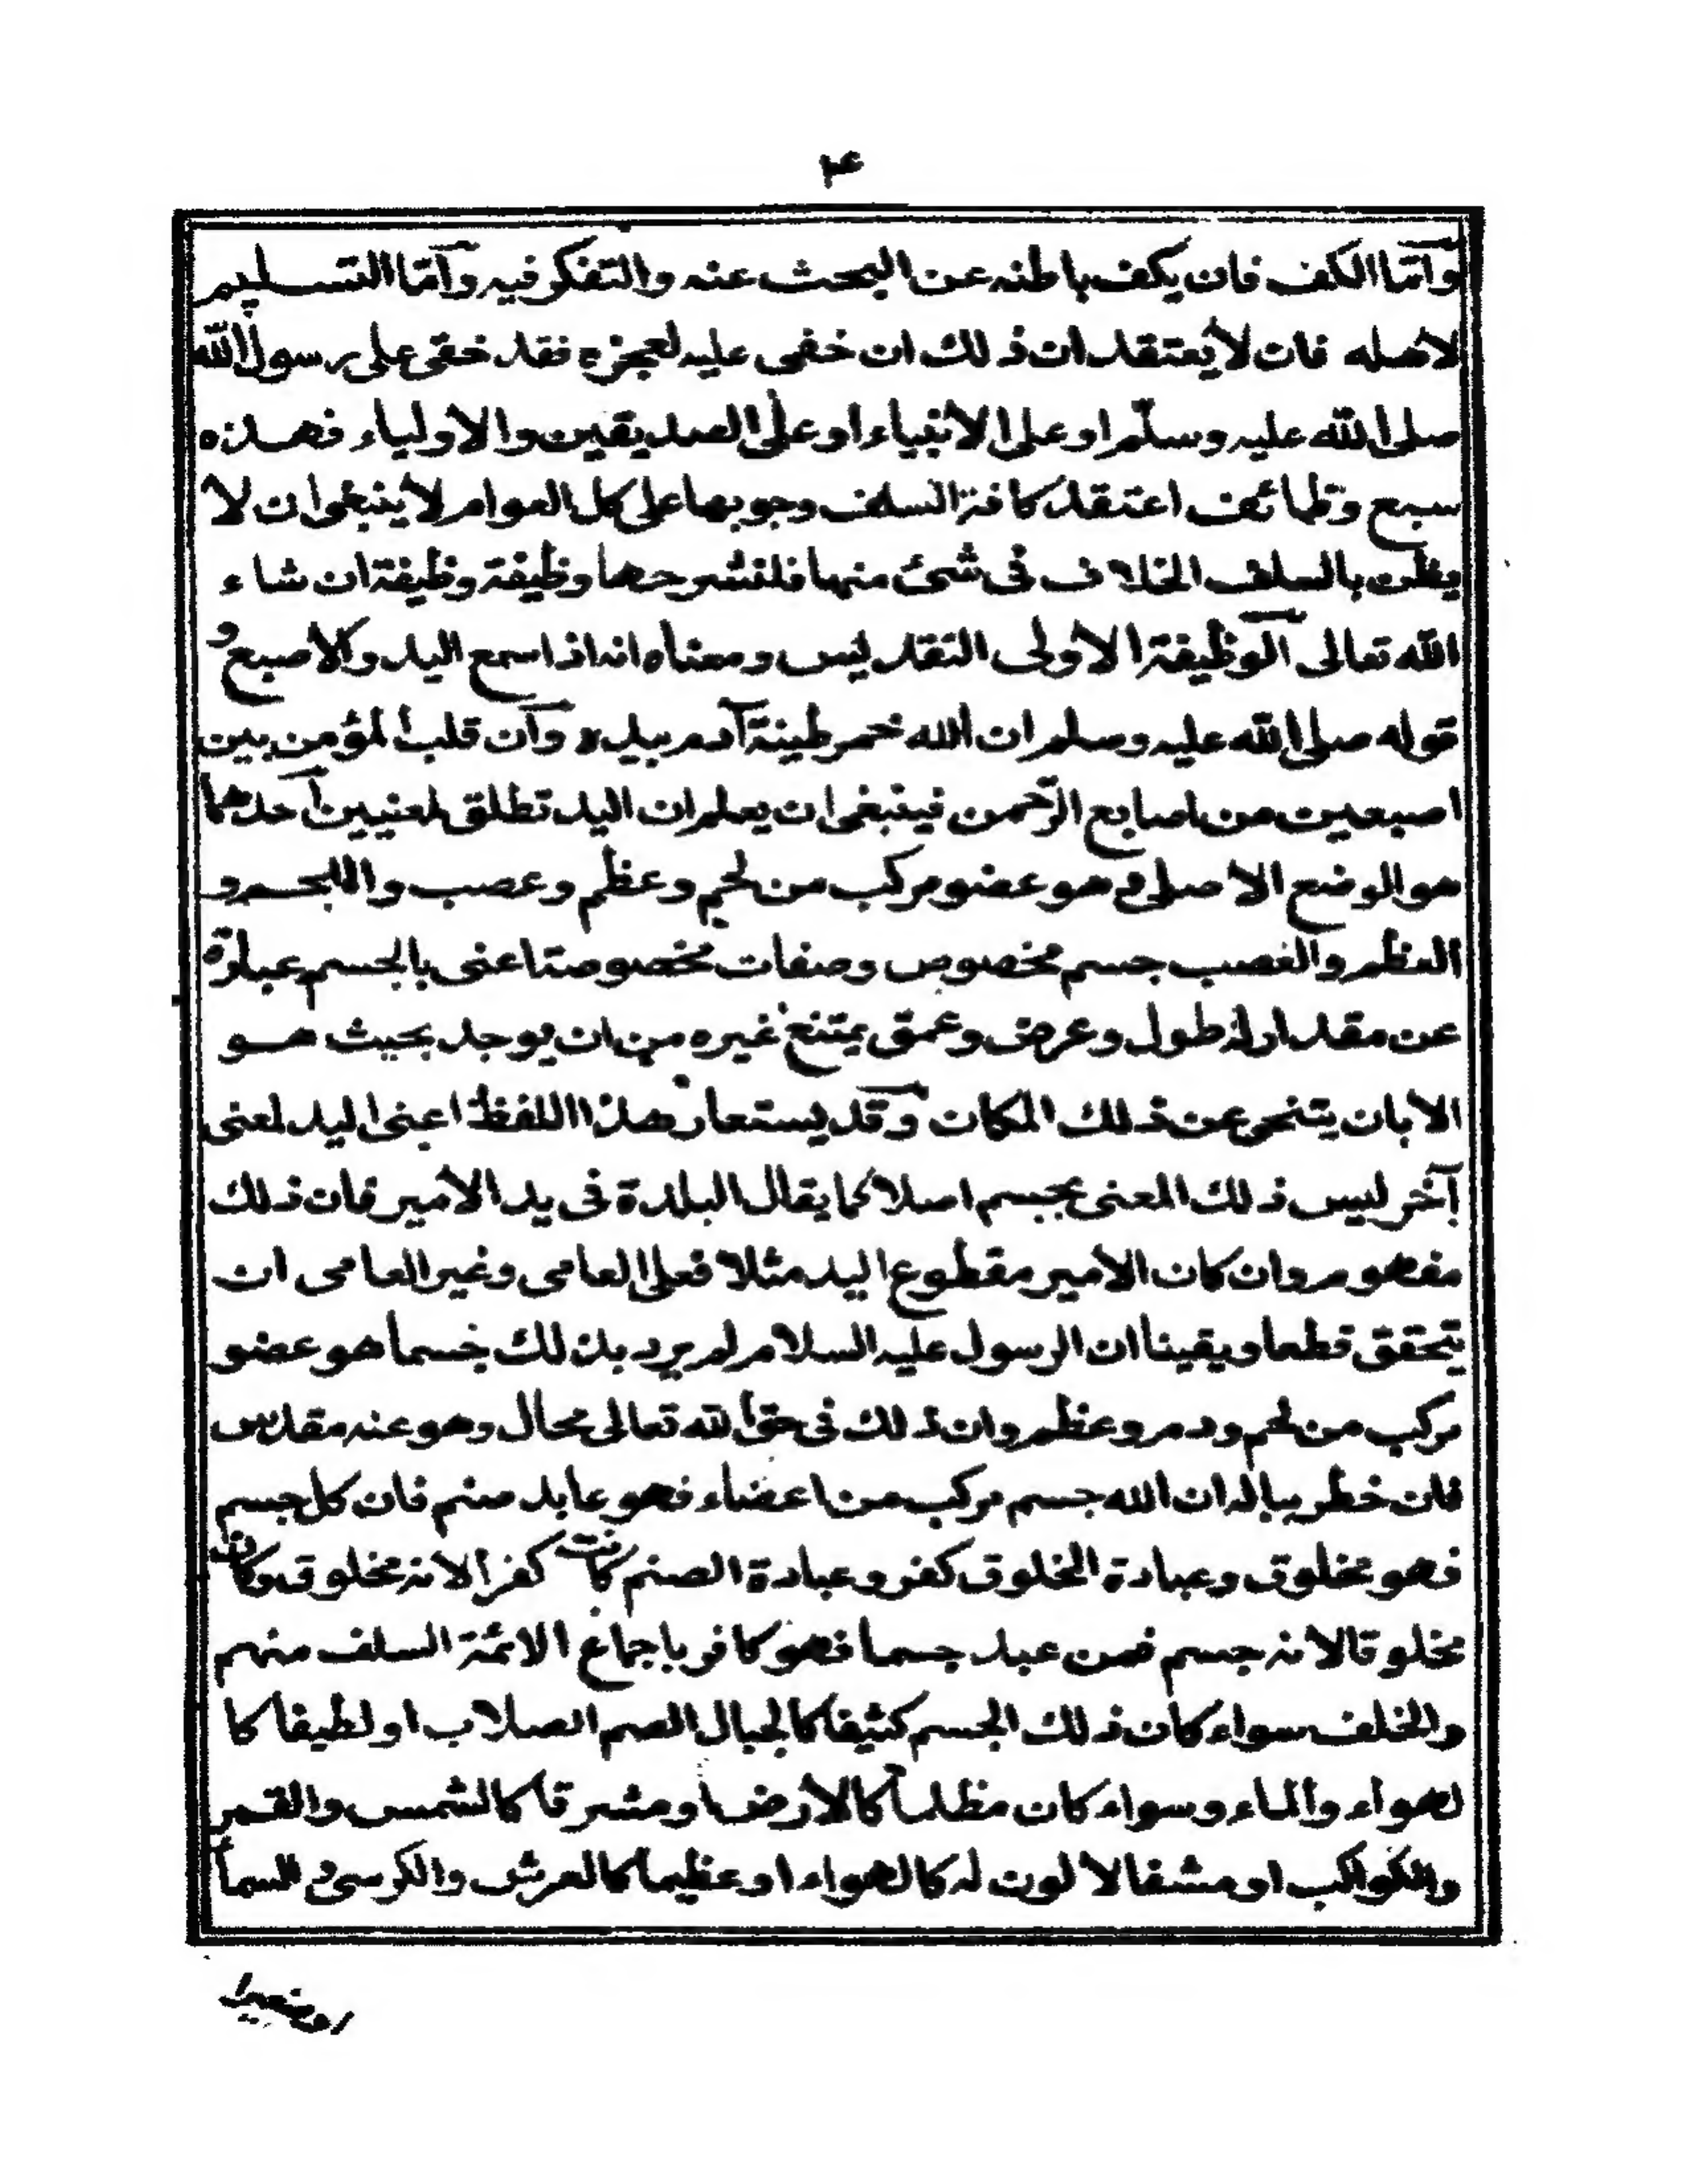 ۴
وآمّا الكف فان يكف باطنه عن البحث عنه والتفكر فيه وآمّا التسليم
لاهله فان لا يعتقد ان ذلك ان خفى عليه لعجزه فقد خفى على رسول الله
صلى الله عليه وسلّم او على الانبياء او على الصديقين والاولياء فهذه
سبع وظائف اعتقد كافة السلف وجوبها على كل العوام لا ينبغى ان لا
يظن بالسلف الخلاف فى شئ منها فلنشرحها وظيفة وظيفة ان شاء
الله تعالى الوظيفة الاولى التقديس ومعناه انه اذا سمع اليد والاصبع و
قوله صلى الله عليه وسلم ان الله خمر طينة آدم بيده وآن قلب المؤمن بين
اصبعين من اصابع الرّحمن فينبغى ان يعلم ان اليد تطلق لمعنيين آحدهما
هو الوضع الاصلى وهو عضو مركب من لحم وعظم وعصب واللحم و
العظم والعصب جسم مخصوص وصفات مخصوصة اعنى بالجسم عبارة
عن مقدار له طول وعرض وعمق يمتنع غيره من ان يوجد بحيث هو
الا بان يتنحى عن ذلك المكان وقد يستعار هذا اللفظ اعنى اليد لمعنى
آخر ليس ذلك المعنى بجسم اصلا كما يقال البلدة فى يد الأمير فان ذلك
مفهوم وان كان الأمير مقطوع اليد مثلا فعلى العامى وغير العامى ان
يتحقق قطعا ويقينا ان الرسول عليه السلام لم يرد بذلك جسما هو عضو
مركب من لحم ودم وعظم وان ذلك فى حق الله تعالى محال وهو عنه مقدس
فان خطر بباله ان الله جسم مركب من اعضاء فهو عابد صنم فان كل جسم
فهو مخلوق وعبادة المخلوق كفر وعبادة الصنم كانت كفرا لانه مخلوق وكان
مخلوقا لانه جسم فمن عبد جسما فهو كافر باجماع الائمة السلف منهم
والخلف سواء كان ذلك الجسم كثيفا كالجبال الصم الصلاب او لطيفا كا
لهواء والماء وسواء كان مظلما كالارض او مشرقا كالشمس والقمر
والكواكب او مشفا لا لون له كالهواء او عظيما كالعرش والكرسى والسما